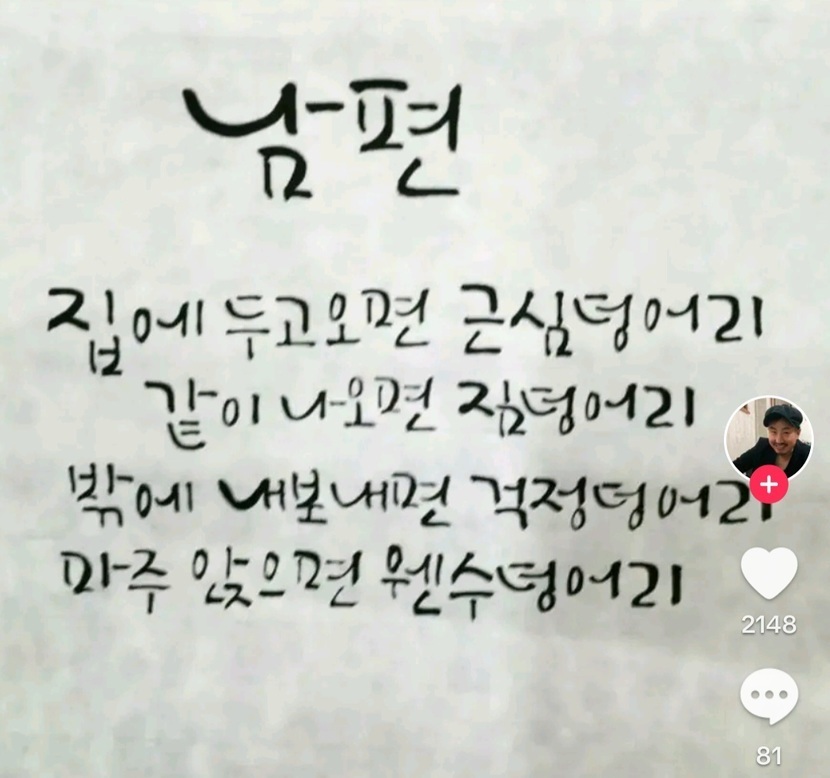 남편
집에 두고오면 근심덩어리
같이 나오면 짐덩어리
밖에 내보내면 걱정덩어리
마주 앉으면 웬수덩어리
2148
81